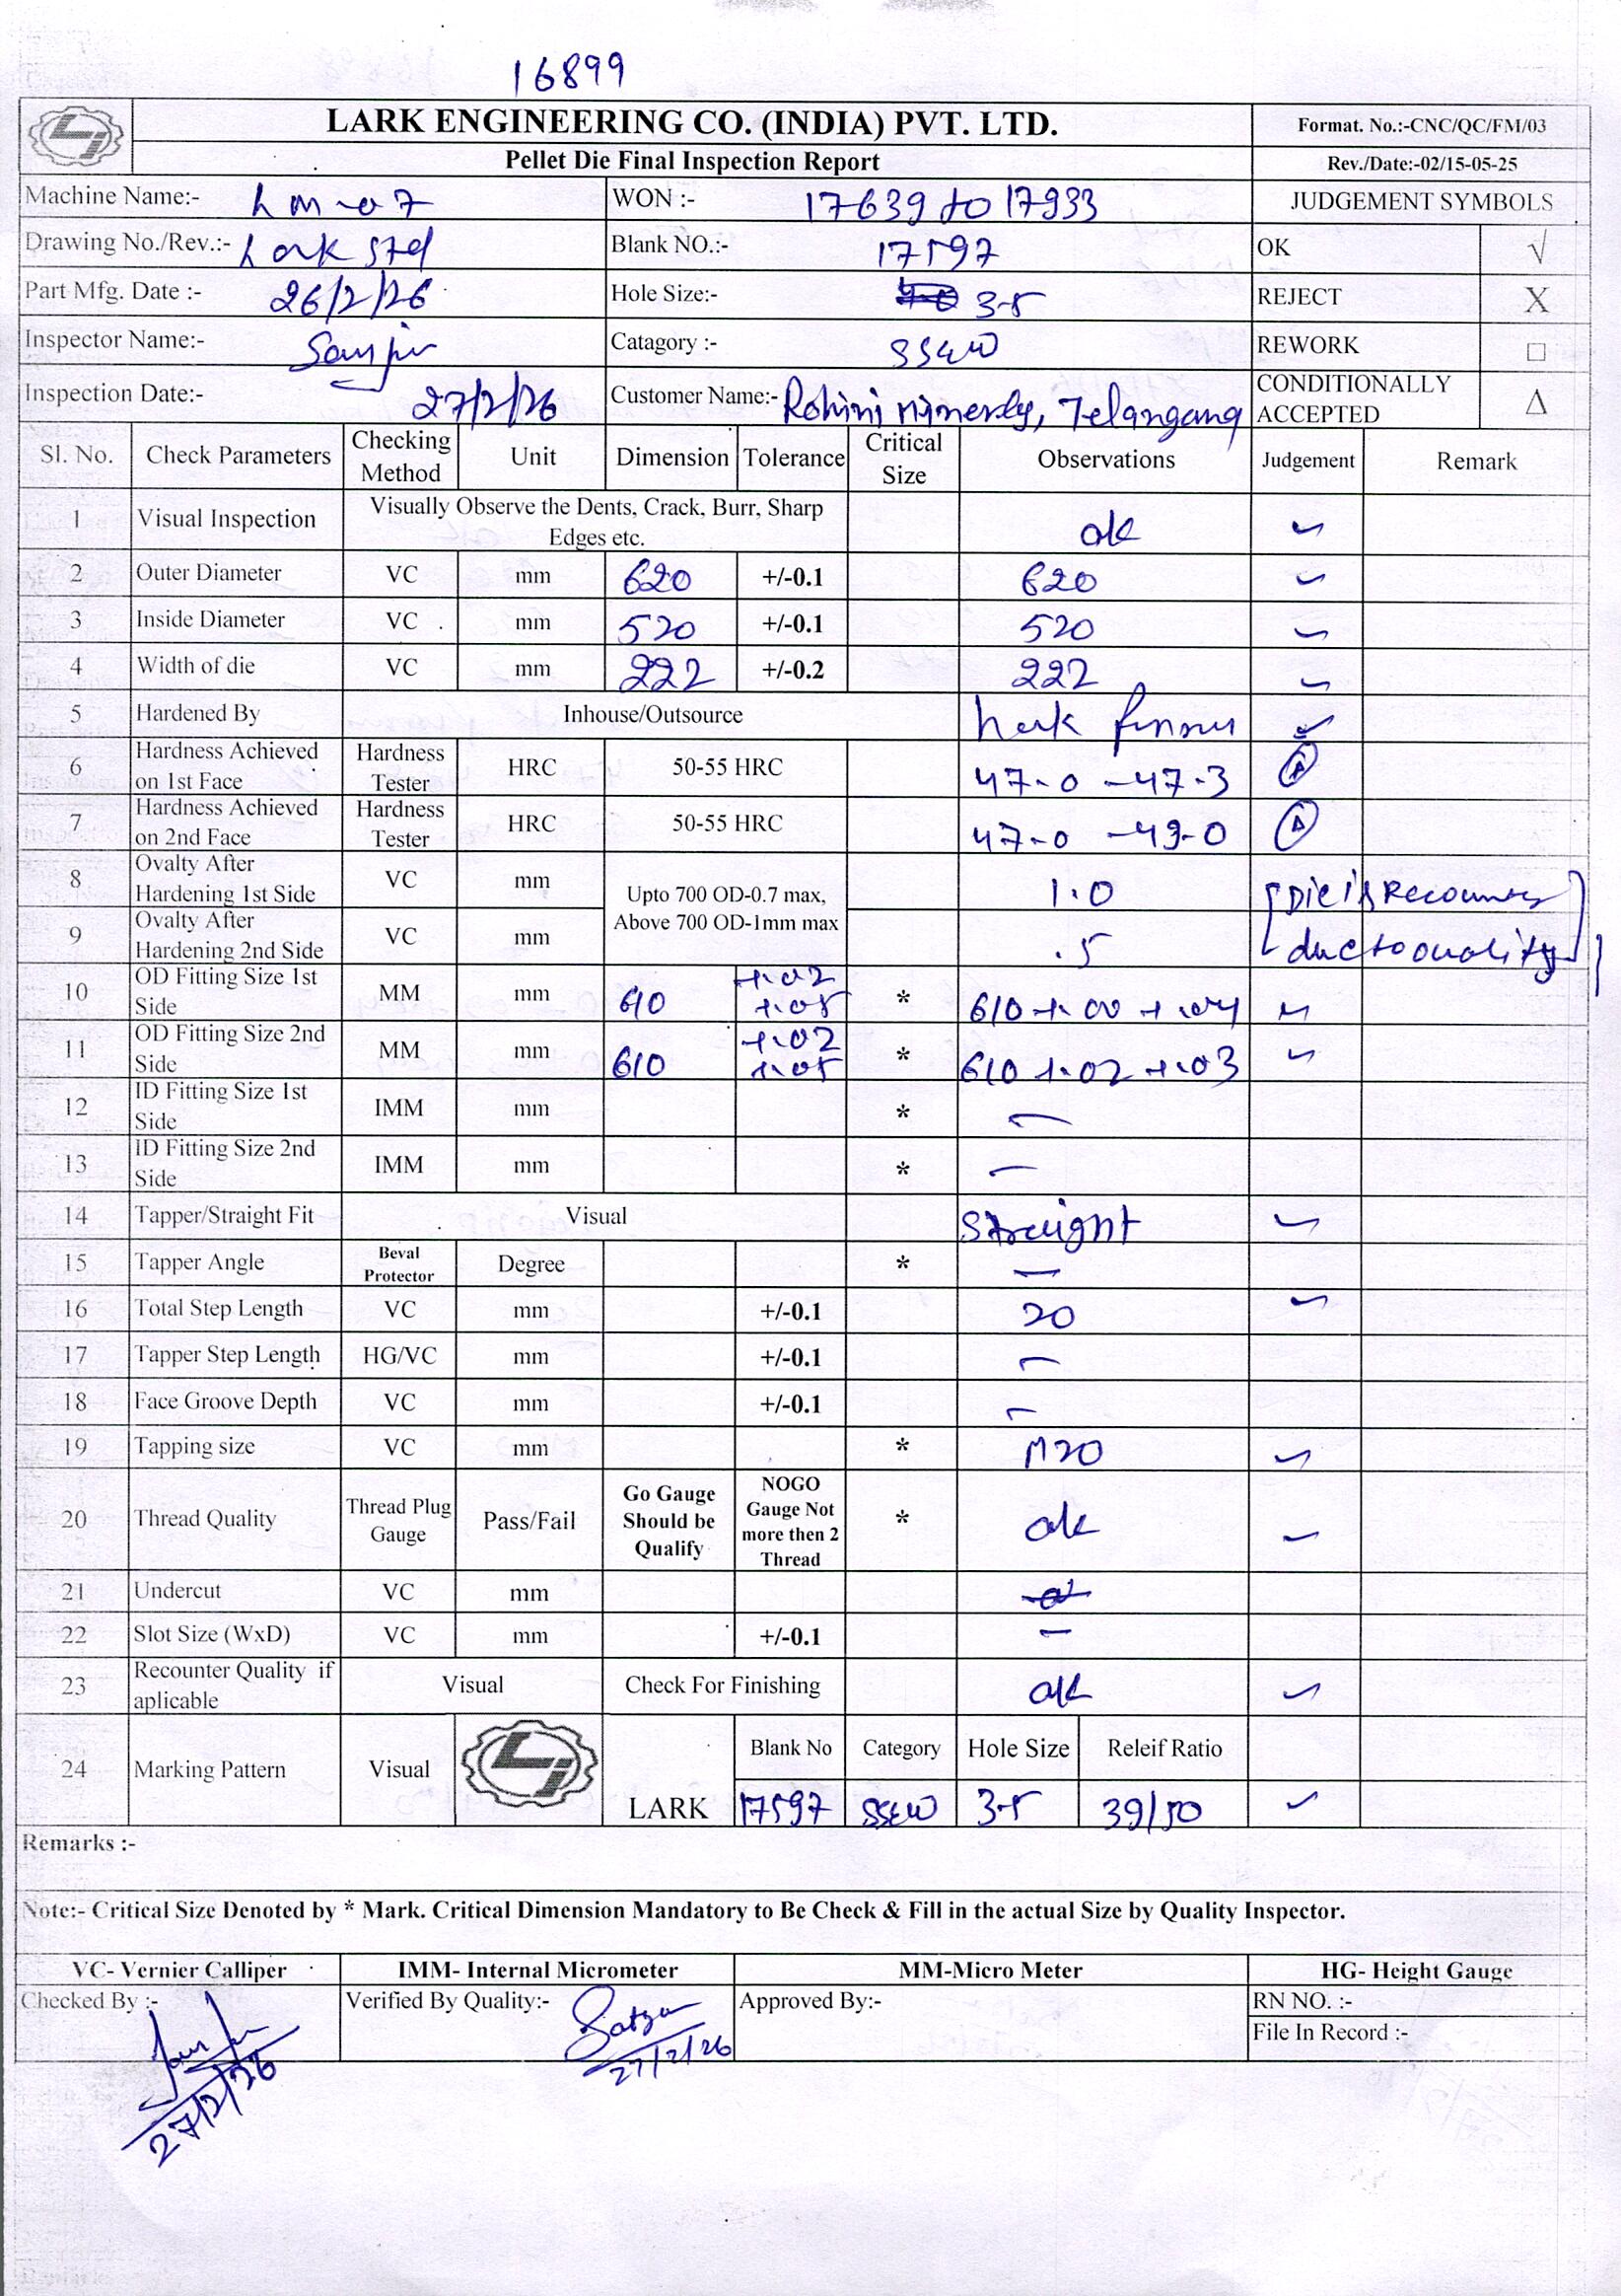 16899
LARK ENGINEERING CO. (INDIA) PVT. LTD. Format. No.:-CNC/QC/FM/03
Pellet Die Final Inspection Report Rev./Date:-02/15-05-25
Machine Name:- WON :- 17639 to 17933 JUDGEMENT SYMBOLS
Drawing No./Rev.:- Lark std Blank NO.:- 17597 OK √
Part Mfg. Date :- 26/2/26 Hole Size:- 3-5 REJECT X
Inspector Name:- Catagory :- SS4W REWORK □
Inspection Date:- 27/2/26 Customer Name:- Rohini , Telangana CONDITIONALLY ACCEPTED Δ
Sl. No. Check Parameters Checking Method Unit Dimension Tolerance Critical Size Observations Judgement Remark
1 Visual Inspection Visually Observe the Dents, Crack, Burr, Sharp Edges etc. ok ✓
2 Outer Diameter VC mm 620 +/-0.1 620 ✓
3 Inside Diameter VC mm 520 +/-0.1 520 ✓
4 Width of die VC mm 222 +/-0.2 222 ✓
5 Hardened By Inhouse/Outsource ✓
6 Hardness Achieved on 1st Face Hardness Tester HRC 50-55 HRC 47-0 -47-3 Δ
7 Hardness Achieved on 2nd Face Hardness Tester HRC 50-55 HRC 47-0 -49-0 Δ
8 Ovalty After Hardening 1st Side VC mm Upto 700 OD-0.7 max, Above 700 OD-1mm max 1.0 Die is Recounter
9 Ovalty After Hardening 2nd Side VC mm .5 due to ovality
10 OD Fitting Size 1st Side MM mm 610 +.02 +.05 * 610 +.00 +.04 ✓
11 OD Fitting Size 2nd Side MM mm 610 +.02 +.05 * 610 +.02 +.03 ✓
12 ID Fitting Size 1st Side IMM mm * —
13 ID Fitting Size 2nd Side IMM mm * —
14 Tapper/Straight Fit Visual Straight ✓
15 Tapper Angle Beval Protector Degree * —
16 Total Step Length VC mm +/-0.1 20 ✓
17 Tapper Step Length HG/VC mm +/-0.1 —
18 Face Groove Depth VC mm +/-0.1 —
19 Tapping size VC mm * M20 ✓
20 Thread Quality Thread Plug Gauge Pass/Fail Go Gauge Should be Qualify NOGO Gauge Not more then 2 Thread * ok ✓
21 Undercut VC mm
22 Slot Size (WxD) VC mm +/-0.1 —
23 Recounter Quality if aplicable Visual Check For Finishing ok ✓
24 Marking Pattern Visual LARK Blank No Category Hole Size Releif Ratio
17597 SS4W 3-5 39/50 ✓
Remarks :-
Note:- Critical Size Denoted by * Mark. Critical Dimension Mandatory to Be Check & Fill in the actual Size by Quality Inspector.
VC- Vernier Calliper IMM- Internal Micrometer MM-Micro Meter HG- Height Gauge
Checked By :- Verified By Quality:- Approved By:- RN NO. :-
File In Record :-
27/2/26 27/2/26